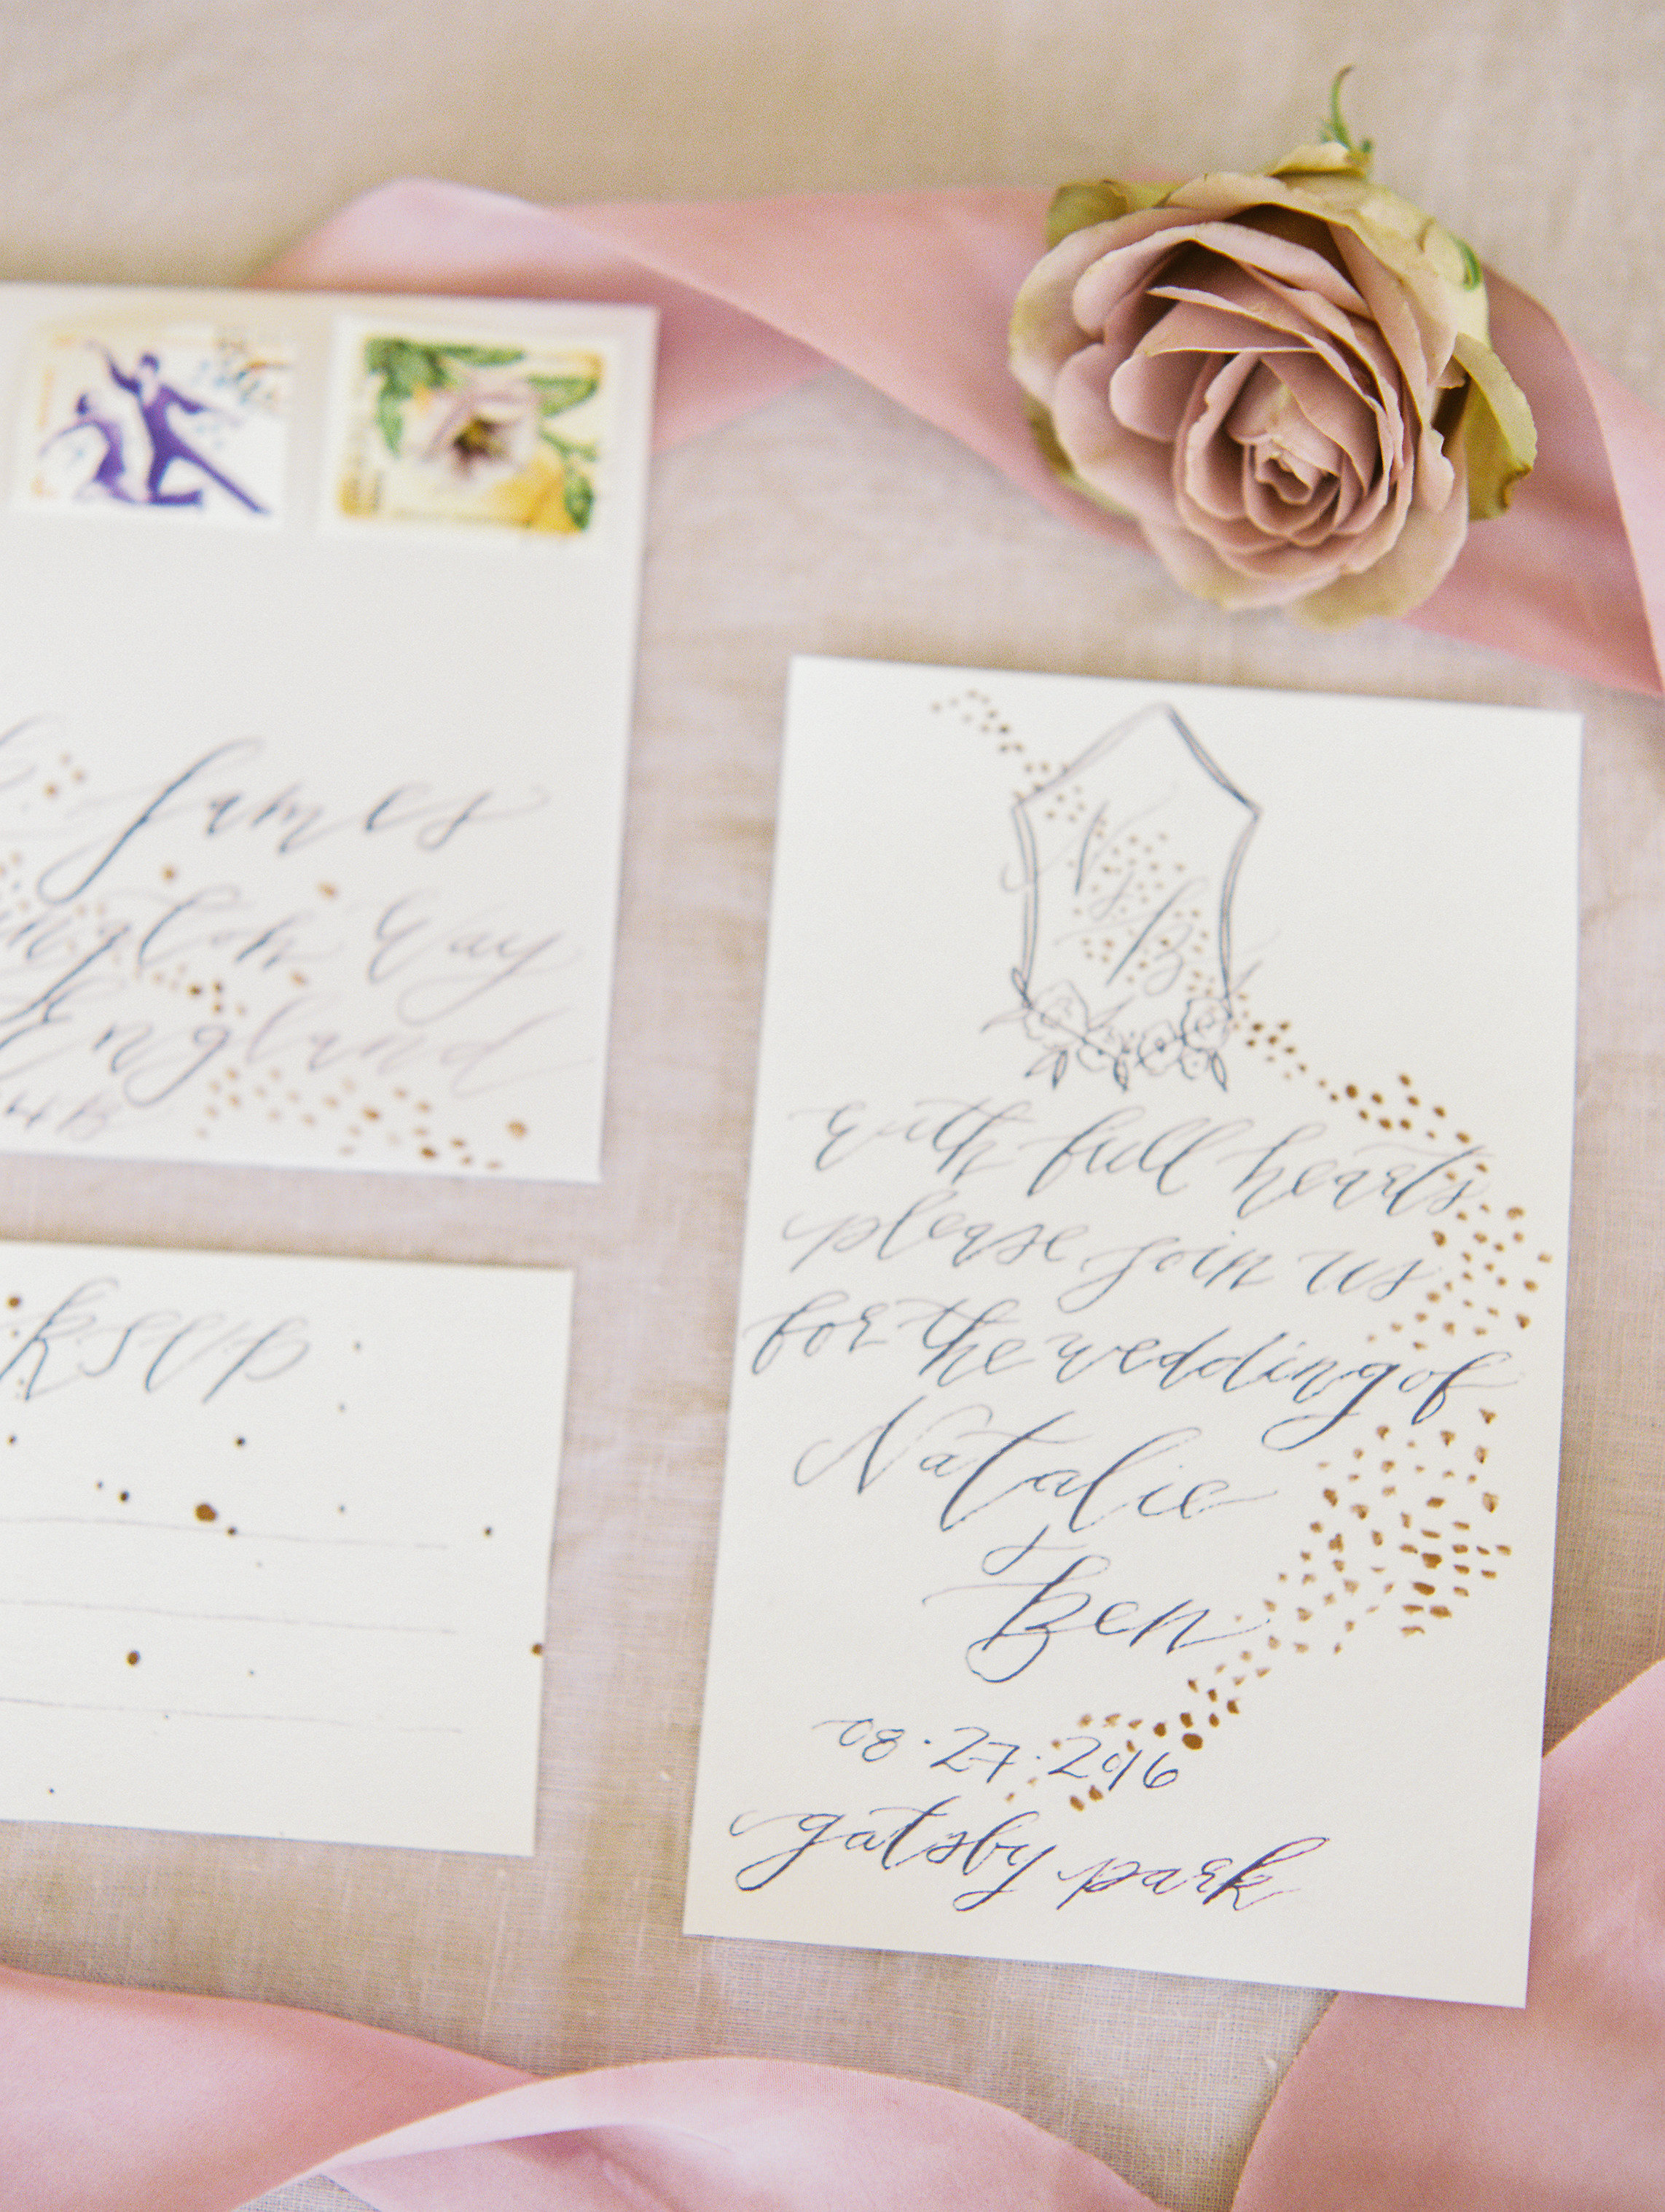 James
Way
England
RSVP
N
&
B
with full hearts
please join us
for the wedding of
Natalie
&
Ben
08.27.2016
gatsby park